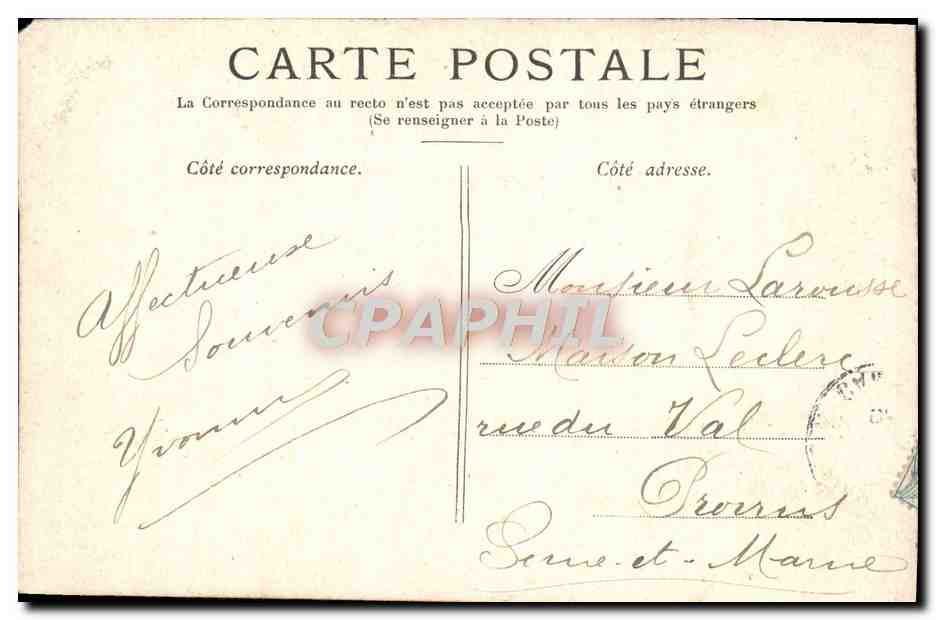 CARTE POSTALE
La Correspondance au recto n'est pas acceptée par tous les pays étrangers
(Se renseigner à la Poste)
Côté correspondance.
Côté adresse.
Affectueuse
Souvenirs
Yvonne
Monsieur Larousse
Maison Leclerc
rue du Val
Provins
Seine-et-Marne
CPAPHIL